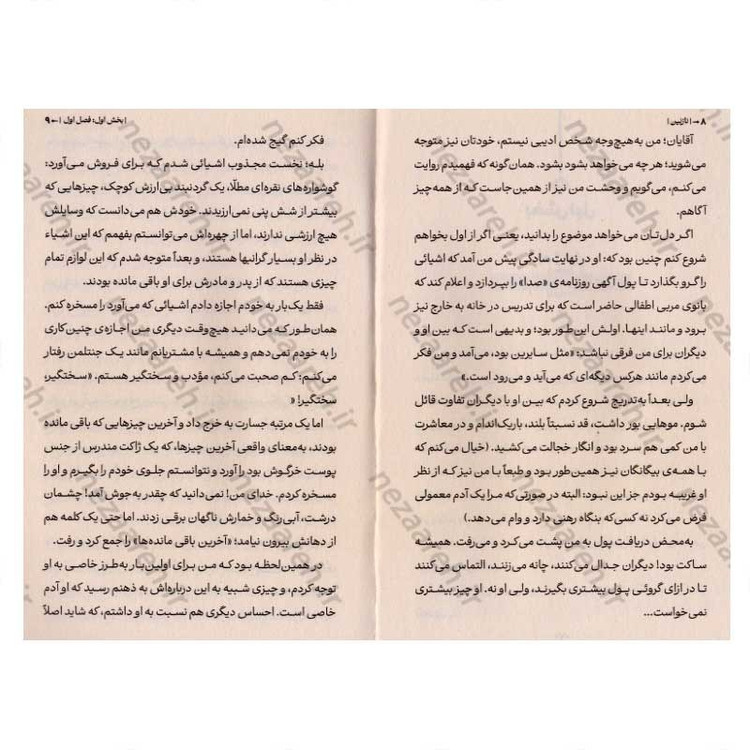 ۸ → | نازنین |
آقایان؛ من به‌هیچ‌وجه شخص ادیبی نیستم، خودتان نیز متوجه
می‌شوید؛ هر چه می‌خواهد بشود بشود. همان‌گونه که فهمیدم روایت
می‌کنم، می‌گویم و وحشت من نیز از همین‌جاست که از همه‌چیز
آگاهم.
اگر دل‌تان می‌خواهد موضوع را بدانید، یعنی اگر از اول بخواهم
شروع کنم چنین بود که: او در نهایت سادگی پیش من آمد که اشیائی
را گرو بگذارد تا پول آگهی روزنامه‌ی «صدا» را بپردازد و اعلام کند که
بانوی مربی اطفالی حاضر است که برای تدریس در خانه به خارج نیز
برود و مانند اینها. اولش این‌طور بود؛ و بدیهی است که بین او و
دیگران برای من فرقی نباشد: «مثل سایرین بود، می‌آمد و من فکر
می‌کردم مانند هرکس دیگه‌ای که می‌آید و می‌رود است.»
ولی بعداً به‌تدریج شروع کردم که بین او با دیگران تفاوت قائل
شوم. موهایی بور داشت، قد نسبتاً بلند، باریک‌اندام و در معاشرت
با من کمی هم سرد بود و انگار خجالت می‌کشید. (خیال می‌کنم که
با همه‌ی بیگانگان نیز همین‌طور بود و طبعاً با من نیز که از نظر
او غریبه بودم جز این نبود: البته در صورتی‌که مرا یک آدم معمولی
فرض می‌کرد نه کسی‌که بنگاه رهنی دارد و وام می‌دهد.)
به‌محض دریافت پول به من پشت می‌کرد و می‌رفت. همیشه
ساکت بود! دیگران جدال می‌کنند، چانه می‌زنند، التماس می‌کنند
تا در ازای گروئی پول بیشتری بگیرند، ولی او نه. او چیز بیشتری
نمی‌خواست...
| بخش اول: فصل اول | ← ۹
فکر کنم گیج شده‌ام.
بله؛ نخست مجذوب اشیائی شدم که برای فروش می‌آورد:
گوشواره‌های نقره‌ای مطلّا، یک گردنبند بی‌ارزش کوچک، چیزهایی که
بیشتر از شش پنی نمی‌ارزیدند. خودش هم می‌دانست که وسایلش
هیچ ارزشی ندارند، اما از چهره‌اش می‌توانستم بفهمم که این اشیاء
در نظر او بسیار گرانبها هستند، و بعداً متوجه شدم که این لوازم تمام
چیزی هستند که از پدر و مادرش برای او باقی مانده بودند.
فقط یک‌بار به خودم اجازه دادم اشیائی که می‌آورد را مسخره کنم.
همان‌طور که می‌دانید هیچ‌وقت دیگری من اجازه‌ی چنین‌کاری
را به خودم نمی‌دهم و همیشه با مشتریانم مانند یک جنتلمن رفتار
می‌کنم: کم صحبت می‌کنم، مؤدب و سختگیر هستم. «سختگیر،
سختگیر! «
اما یک مرتبه جسارت به خرج داد و آخرین چیزهایی که باقی مانده
بودند، به‌معنای واقعی آخرین چیزها، که یک ژاکت مندرس از جنس
پوست خرگوش بود را آورد و نتوانستم جلوی خودم را بگیرم و او را
مسخره کردم. خدای من! نمی‌دانید که چقدر به‌جوش آمد! چشمان
درشت، آبی‌رنگ و خمارش ناگهان برقی زدند. اما حتی یک کلمه هم
از دهانش بیرون نیامد؛ «آخرین باقی مانده‌ها» را جمع کرد و رفت.
در همین‌لحظه بود که من برای اولین‌بار به‌طرز خاصی به او
توجه کردم، و چیزی شبیه به این درباره‌اش به ذهنم رسید که او آدم
خاصی است. احساس دیگری هم نسبت به او داشتم، که شاید اصلاً
nezaareh.ir